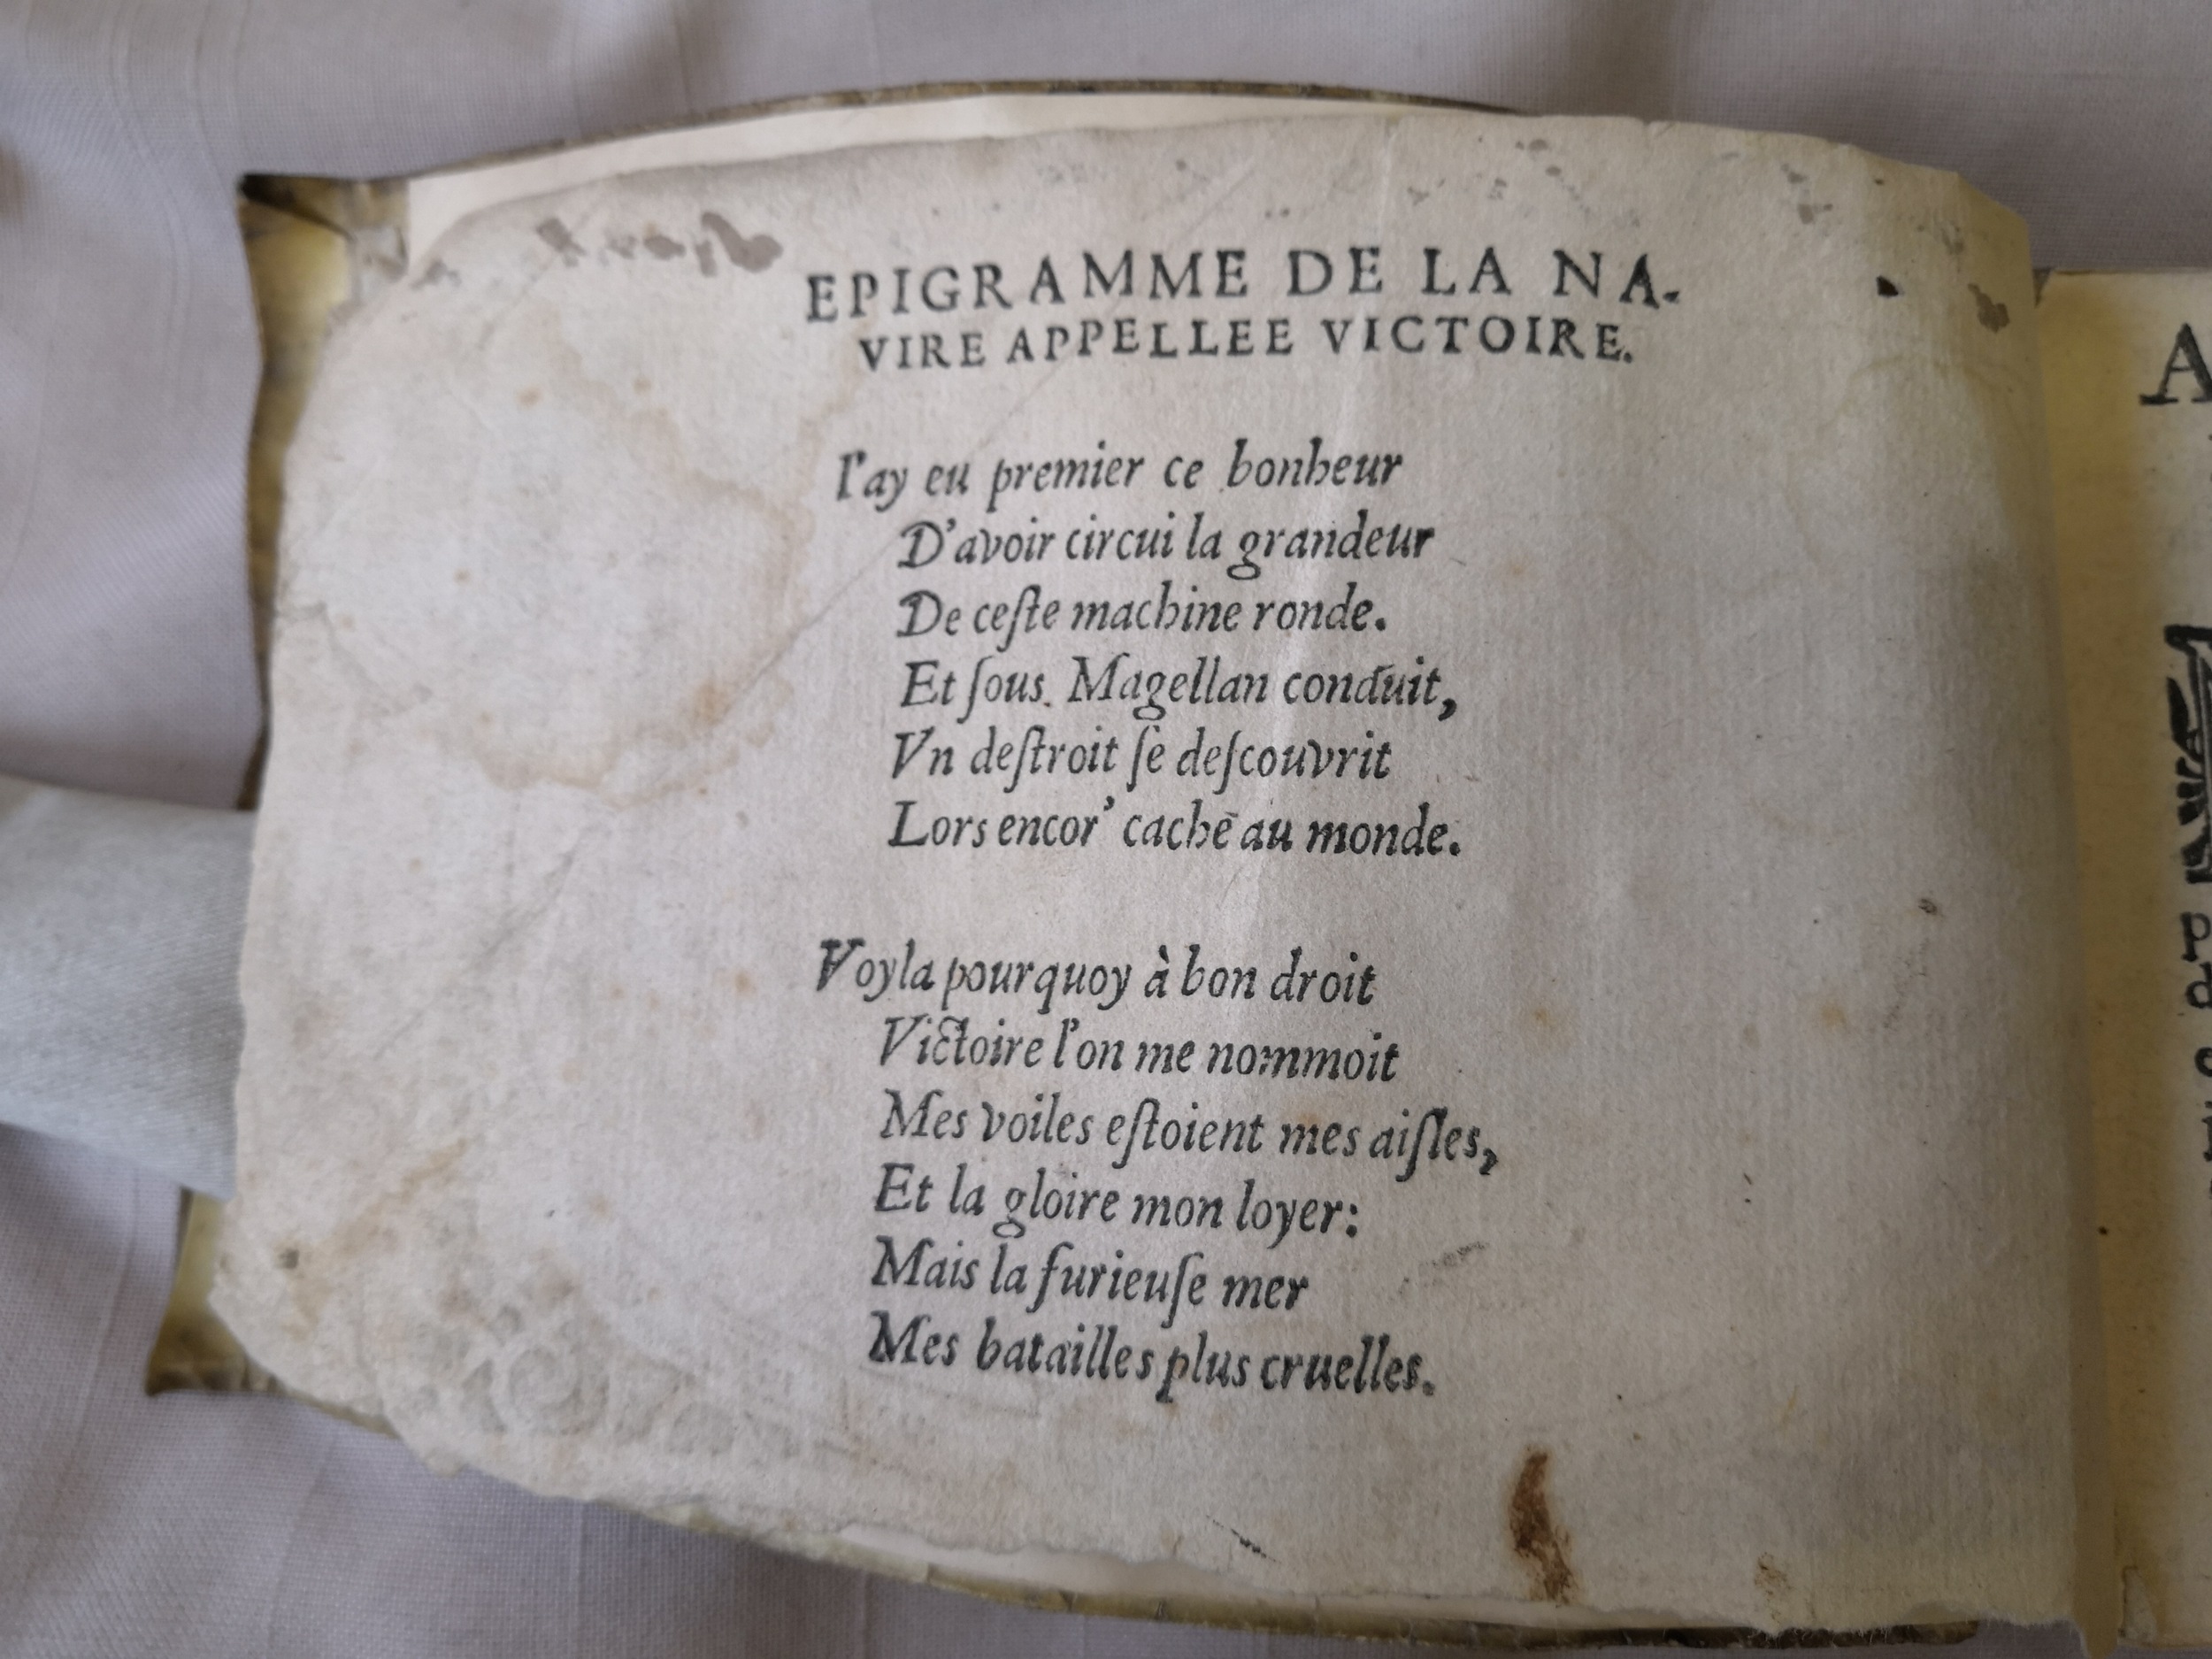 EPIGRAMME DE LA NA-
VIRE APPELLEE VICTOIRE.
I'ay eu premier ce bonheur
D'avoir circui la grandeur
De ceſte machine ronde.
Et ſous Magellan conduit,
Vn deſtroit ſe deſcouvrit
Lors encor' caché au monde.
Voyla pourquoy à bon droit
Victoire l'on me nommoit
Mes voiles eſtoient mes aiſles,
Et la gloire mon loyer:
Mais la furieuſe mer
Mes batailles plus cruelles.
A